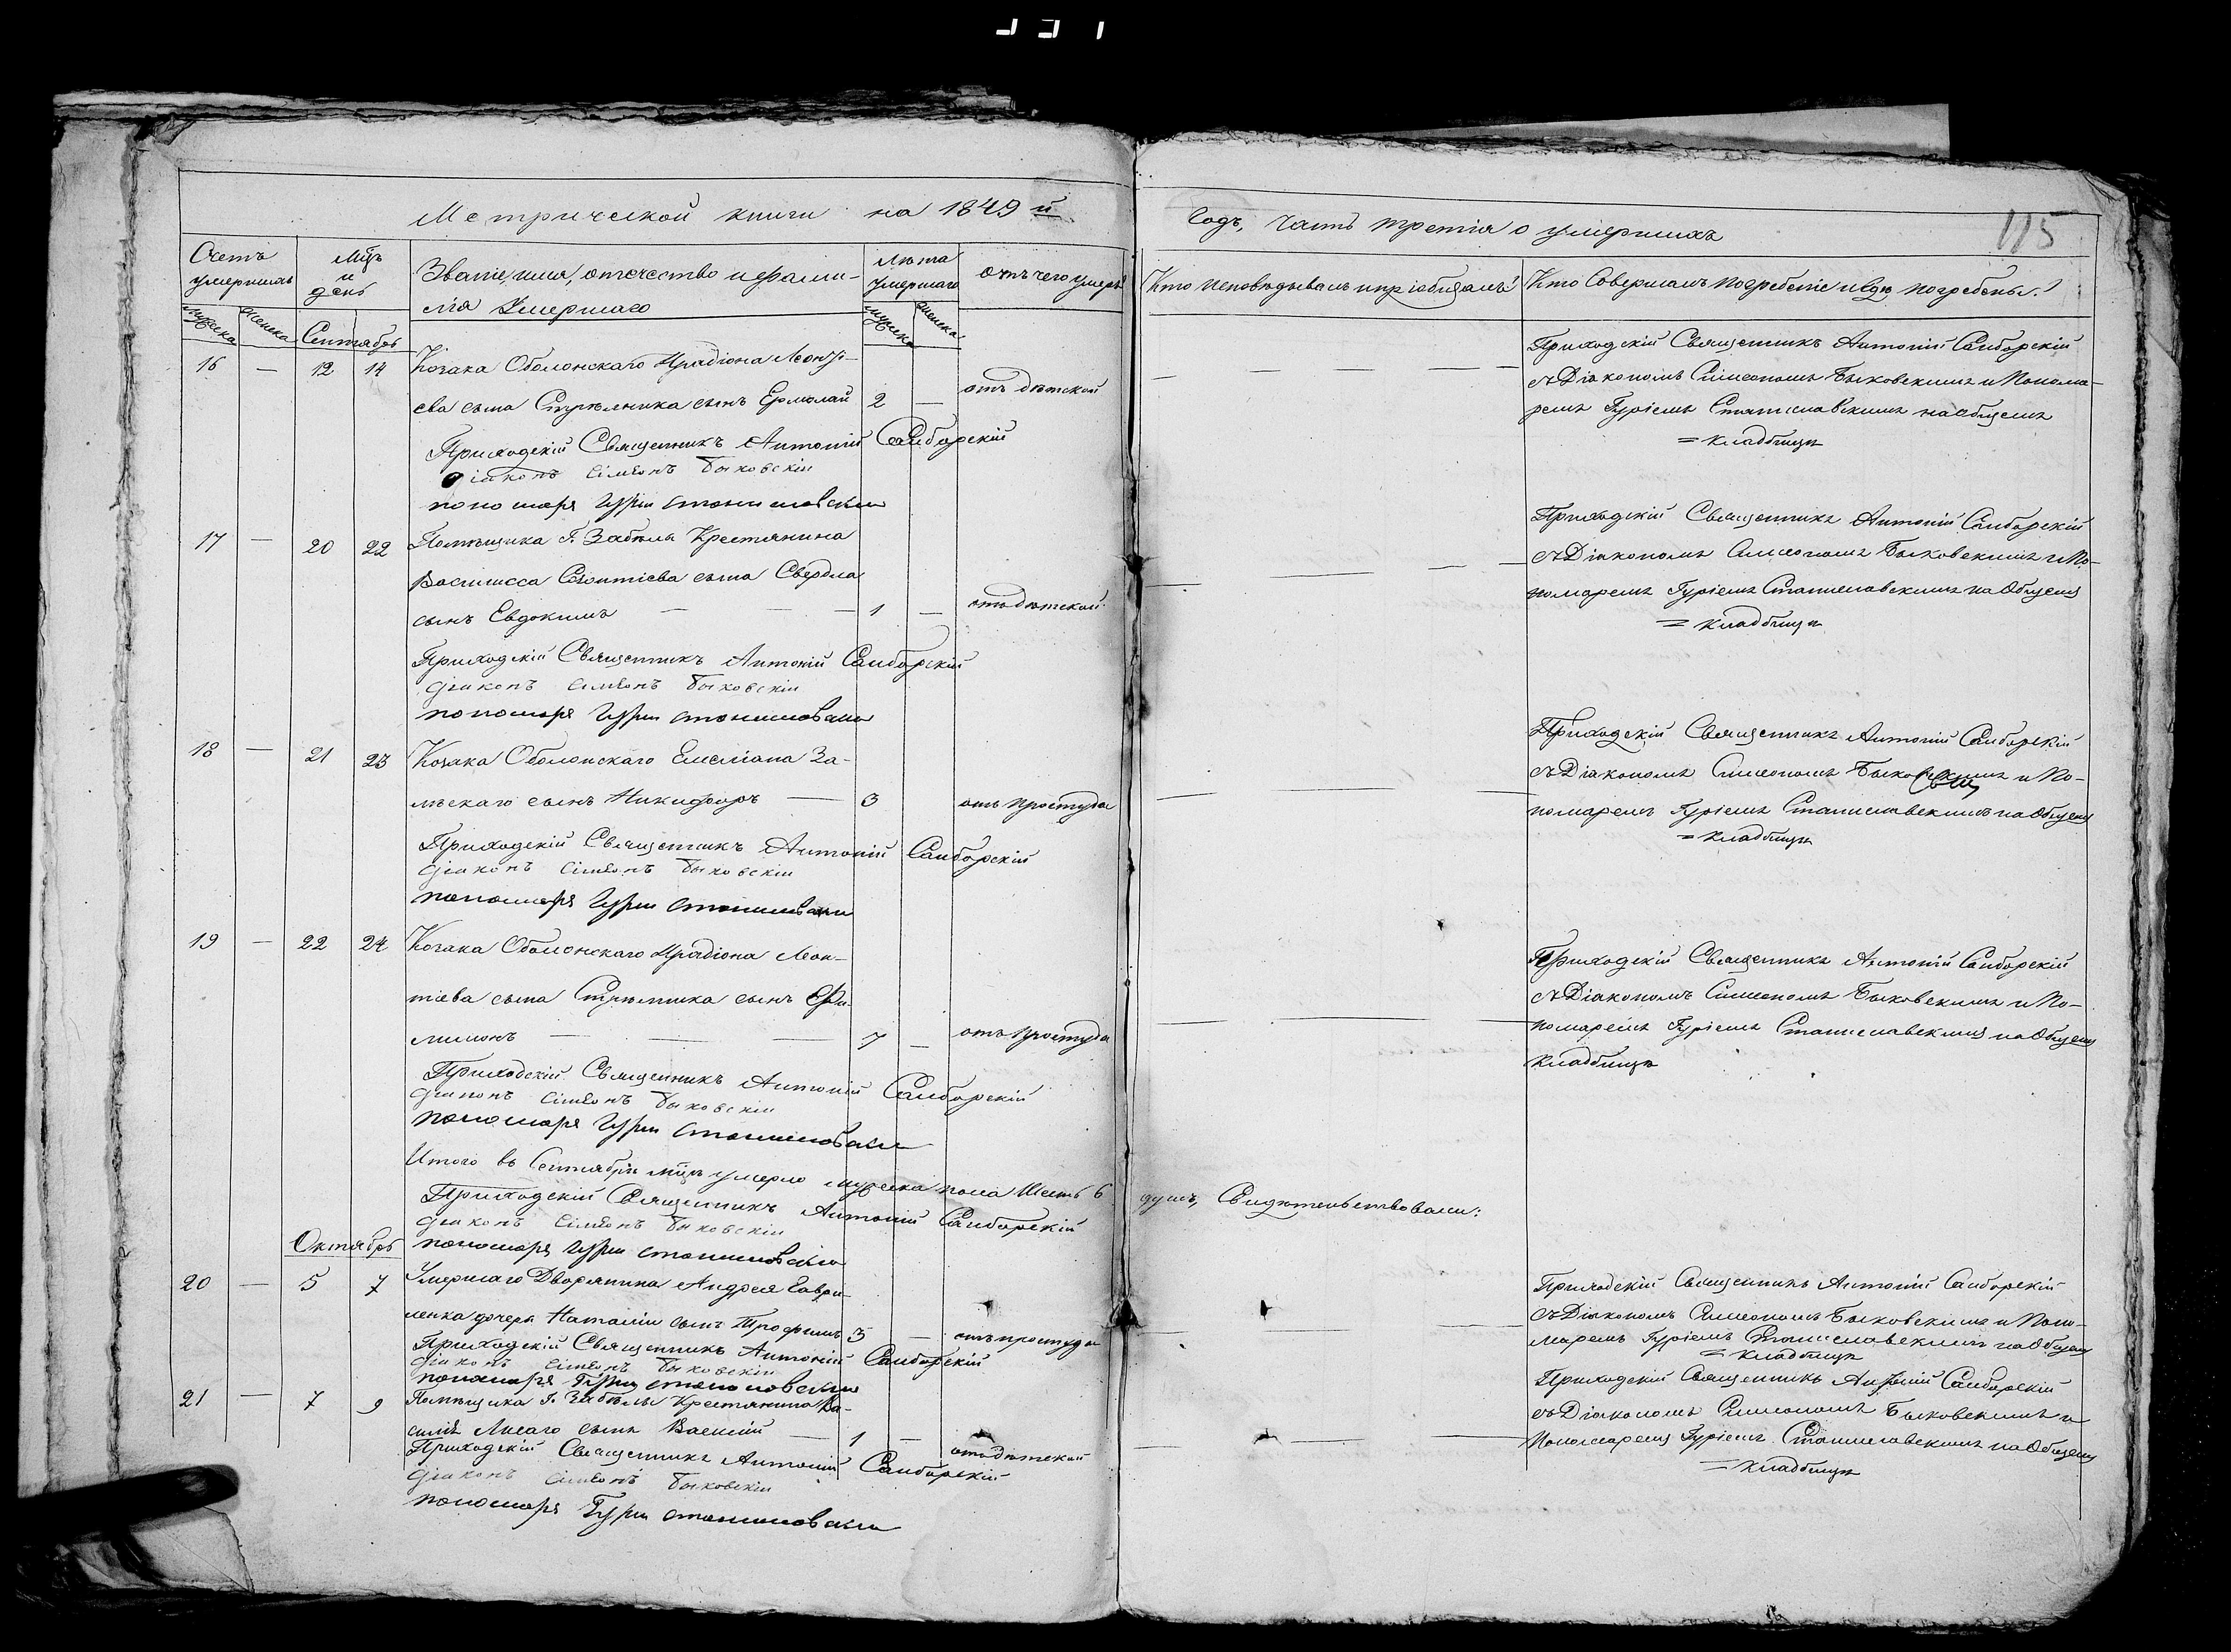 Метрической книги на 1849 й
Счетъ умершихъ
Мцъ и день
Званіе, имя, отечество и фамилія Умершаго
Лѣта умершаго
отъ чего умеръ
Мужеска Женска
Сентябрь
Мужеска Женска
16 — 12 14 Козака Оболонскаго Иродіона Леонтіева сына Стрѣльника сынъ Ермолай 2 — отъ дѣтской
Приходскій Священникъ Антоній Самборскій
Діаконъ Сімеонъ Быковскій
пономаря Гурій Станиславскій
17 — 20 22 Помѣщика Г. Забѣлы Крестьянина
сына Свердла
сынъ Евдокимъ — — — 1 — отъ дѣтской
Приходскій Священникъ Антоній Самборскій
Діаконъ Сімеонъ Быковскій
пономаря Гурій Станиславскій
18 — 21 23 Козака Оболонскаго Емеліана За-
лѣскаго сынъ Никифоръ — 3 отъ простуды
Приходскій Священникъ Антоній Самборскій
Діаконъ Сімеонъ Быковскій
пономаря Гурій Станиславскій
19 — 22 24 Козака Оболонскаго Иродіона Леон-
тіева сына Стрѣльника сынъ
— — — 7 — отъ простуды
Приходскій Священникъ Антоній Самборскій
Діаконъ Сімеонъ Быковскій
пономаря Гурій Станиславскій
Итого въ Сентябрѣ мцѣ умерло мужеска пола Шесть 6
Приходскій Священникъ Антоній Самборскій
Діаконъ Сімеонъ Быковскій
пономаря Гурій Станиславскій
Октябрь
20 — 5 7 Умершаго Дворянина Андрея Гаври-
ленка дочери Наталіи сынъ Трофимъ 3 — отъ простуды
Приходскій Священникъ Антоній Самборскій
Діаконъ Сімеонъ Быковскій
пономаря Гурій Станиславскій
21 — 7 9 Помѣщика Г. Забѣлы Крестьянина Ва-
силія Лисаго сынъ Василій — 1 — отъ дѣтской
Приходскій Священникъ Антоній Самборскій
Діаконъ Сімеонъ Быковскій
пономаря Гурій Станиславскій
Годъ, Часть третія о умершихъ
115
Кто исповѣдывалъ и пріобщалъ?
Кто Совершалъ погребеніе и гдѣ погребены?
Приходскій Священникъ Антоній Самборскій
съ Діакономъ Симеономъ Быковскимъ и Понома-
ремъ Гуріемъ Станиславскимъ на общемъ
= кладбищѣ
Приходскій Священникъ Антоній Самборскій
съ Діакономъ Симеономъ Быковскимъ и По-
номаремъ Гуріемъ Станиславскимъ на Общемъ
= кладбищѣ
Приходскій Священникъ Антоній Самборскій
съ Діакономъ Симеономъ Быковскимъ и По-
номаремъ Гуріемъ Станиславскимъ на Общемъ
= кладбищѣ
Приходскій Священникъ Антоній Самборскій
съ Діакономъ Симеономъ Быковскимъ и По-
номаремъ Гуріемъ Станиславскимъ на Общемъ
кладбищѣ
душъ, Свидѣтельствовали:
Приходскій Священникъ Антоній Самборскій
съ Діакономъ Симеономъ Быковскимъ и Поно-
маремъ Гуріемъ Станиславскимъ на Общемъ
= кладбищѣ
Приходскій Священникъ Антоній Самборскій
съ Діакономъ Симеономъ Быковскимъ и
Пономаремъ Гуріемъ Станиславскимъ на Общемъ
= кладбищѣ